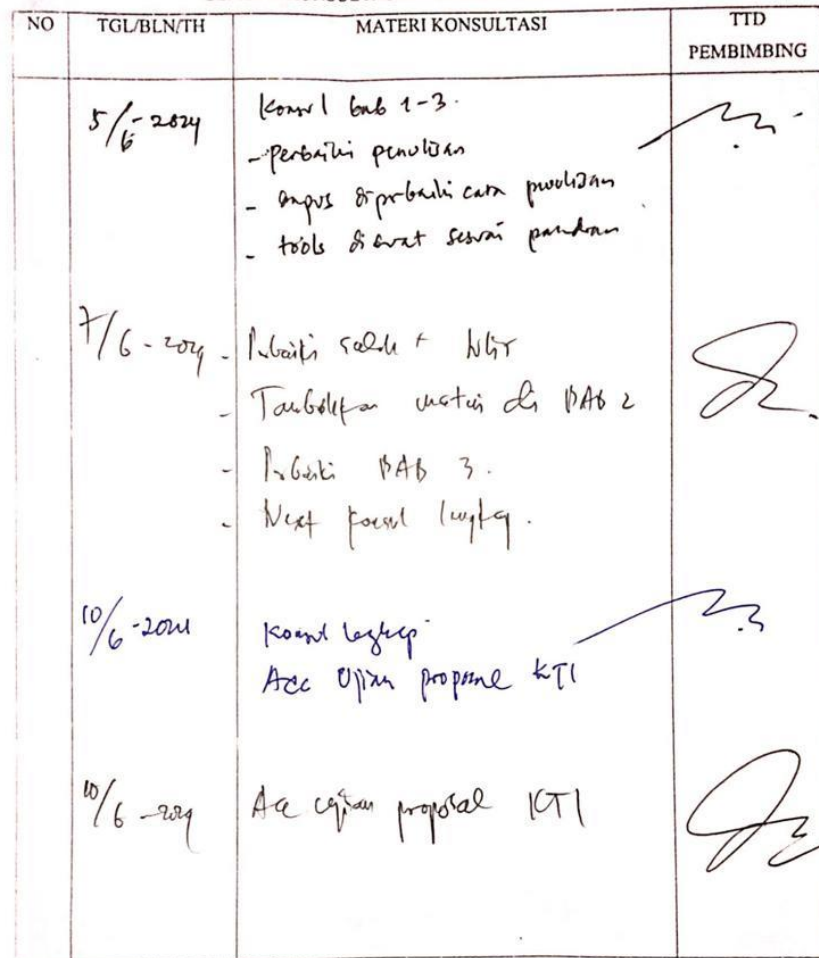 NO TGL/BLN/TH MATERI KONSULTASI TTD PEMBIMBING
5/6-2024 Konsul bab 1-3.
- perbaiki penulisan
- diperbaiki cara penulisan
- tools dibuat sesuai panduan
7/6-2024 - Perbaiki salah +
- Tambahkan materi di BAB 2
- Perbaiki BAB 3.
- Next konsul lengkap.
10/6-2024 Konsul lengkap
Acc Ujian proposal KTI
10/6-2024 Acc ujian proposal KTI